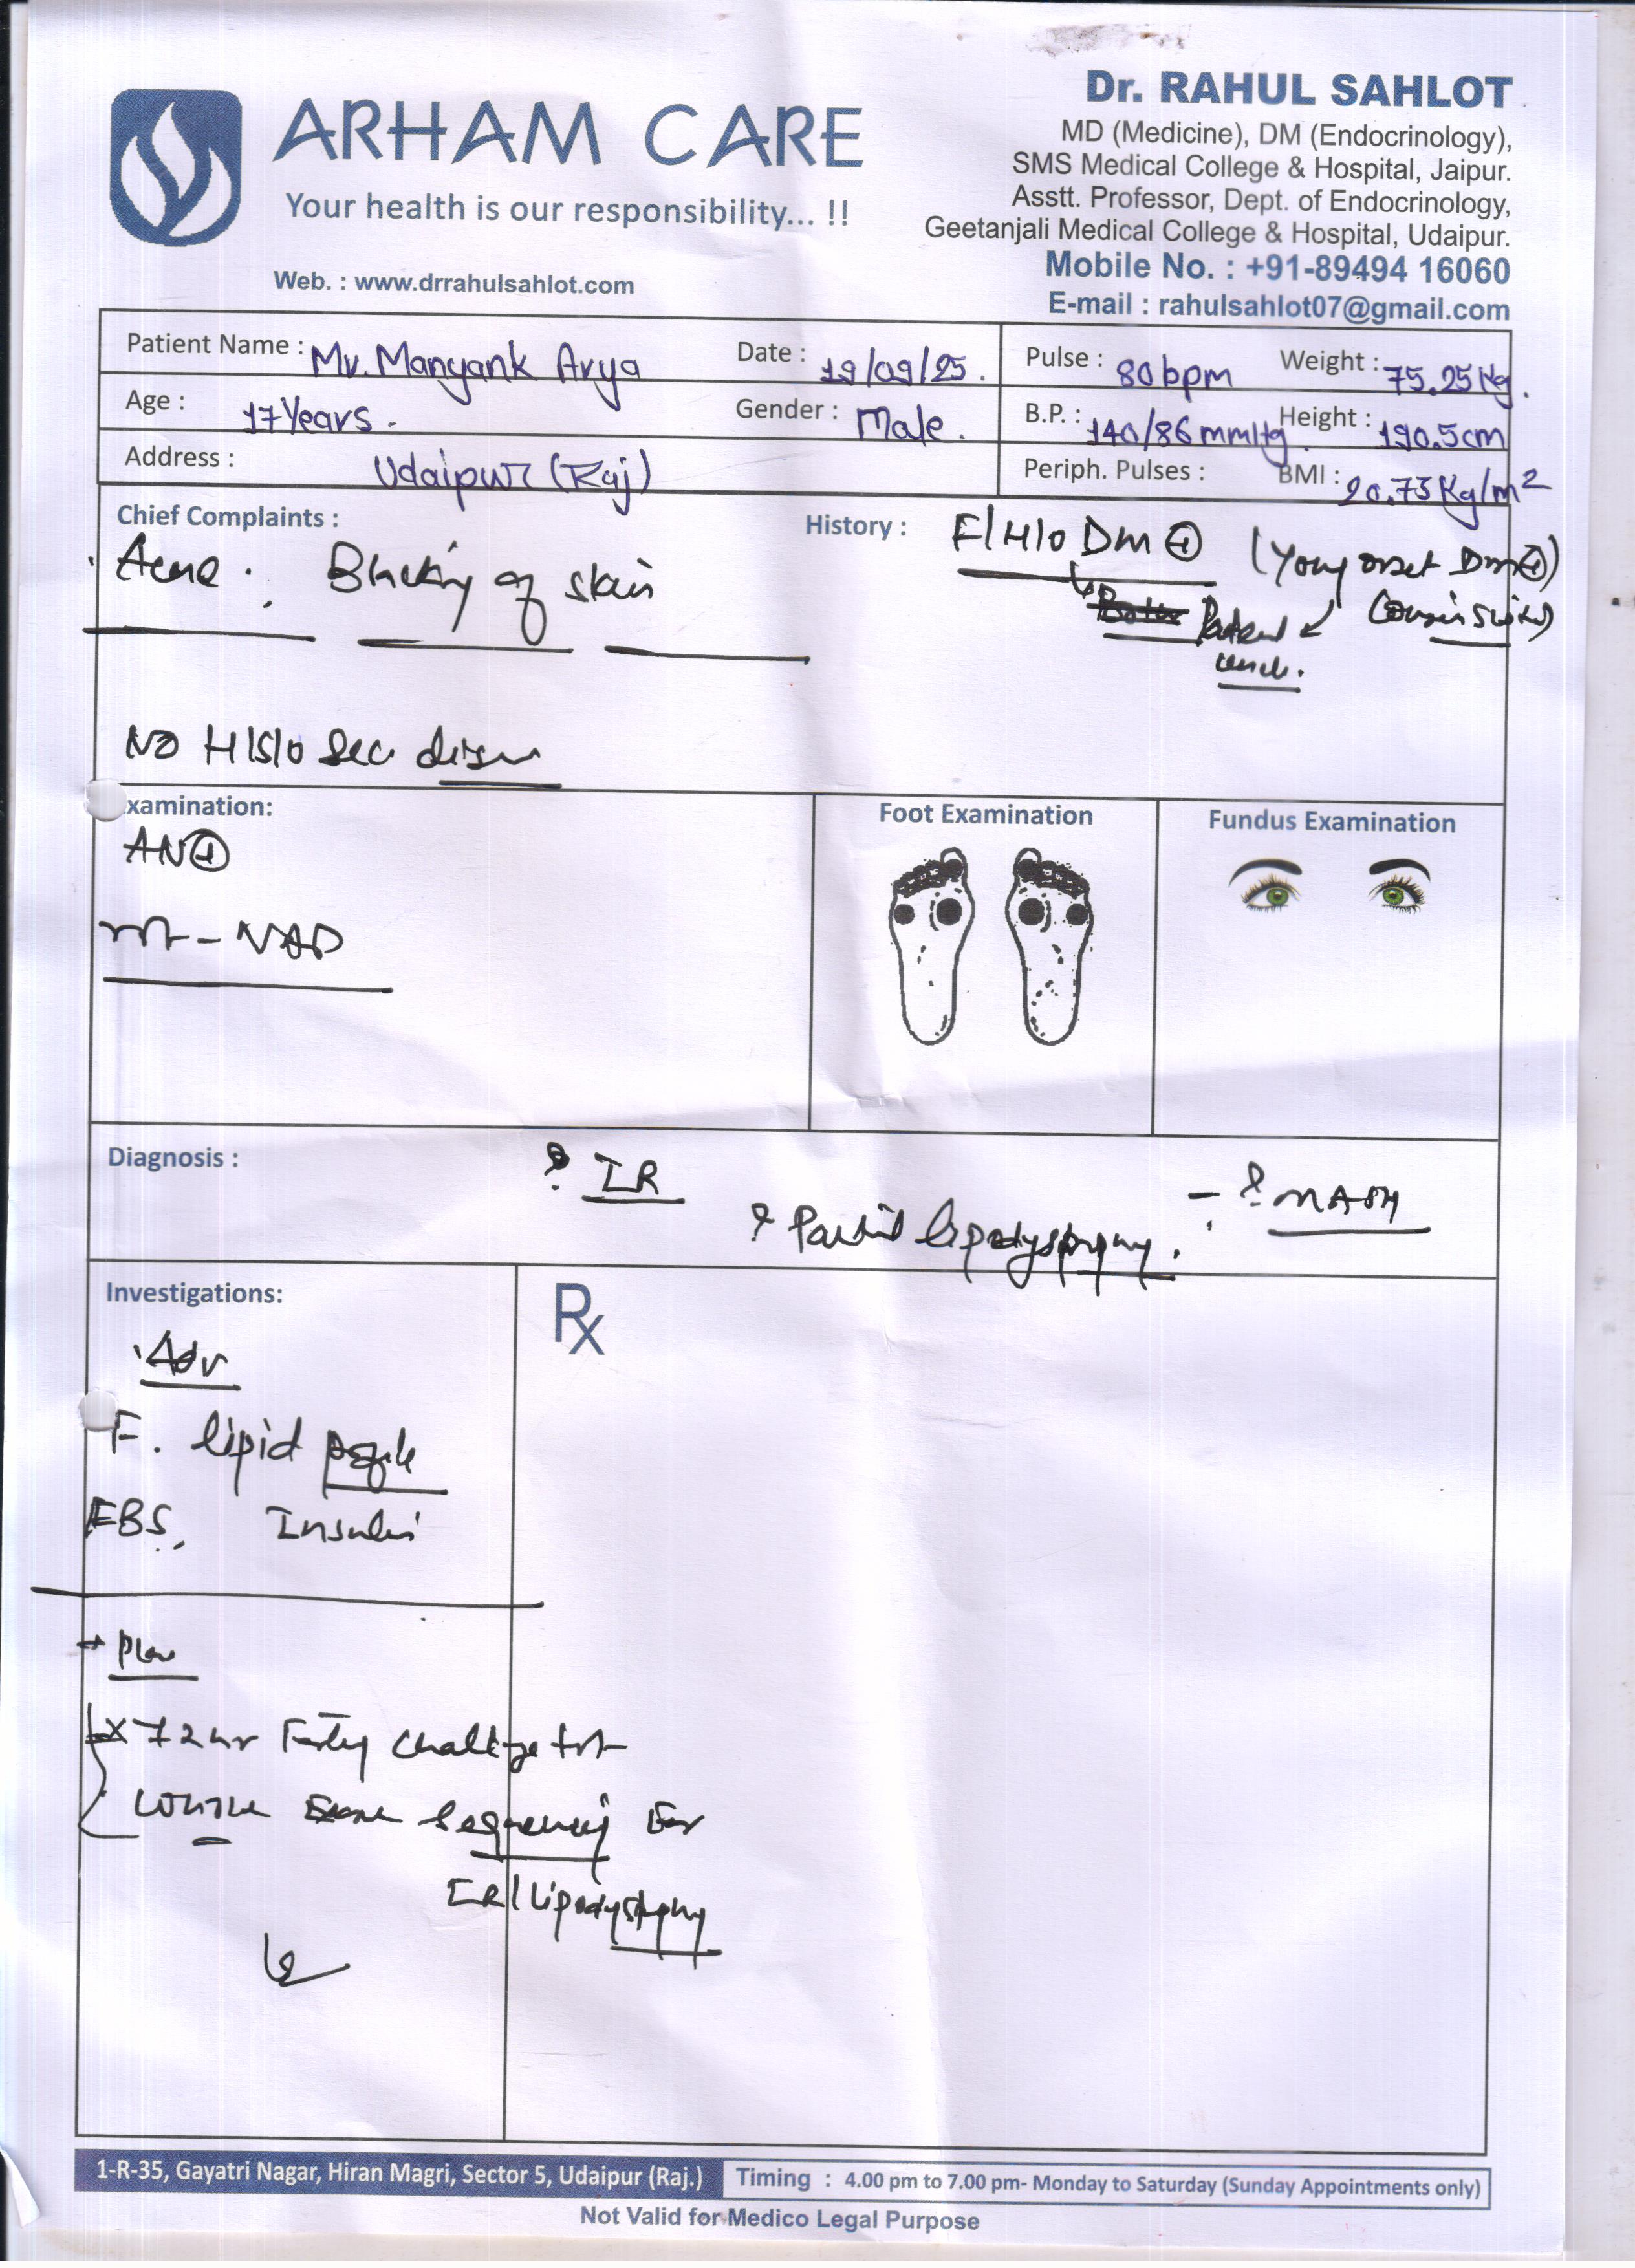 Dr. RAHUL SAHLOT
ARHAM CARE
MD (Medicine), DM (Endocrinology),
SMS Medical College & Hospital, Jaipur.
Your health is our responsibility... !!
Asstt. Professor, Dept. of Endocrinology,
Geetanjali Medical College & Hospital, Udaipur.
Mobile No. : +91-89494 16060
Web. : www.drrahulsahlot.com
E-mail : rahulsahlot07@gmail.com
Patient Name : Mr. Manyank Arya Date : 19/09/25. Pulse : 80 bpm Weight : 75.25 Kg.
Age : 17 Years. Gender : Male. B.P. : 140/86 mmHg Height : 190.5 cm
Address : Udaipur (Raj) Periph. Pulses : BMI : 20.73 Kg/m2
Chief Complaints : History : F/H/O Dm ⊕ (Young onset Dm ⊕)
Acne. of skin
NO H/S/O Sec
xamination: Foot Examination Fundus Examination
AN ⊕
- NAD
Diagnosis : ? IR - ? MASH
? Partial lipodystrophy.
Investigations: Rx
Adv
F. lipid profile
FBS, Insulin
→ Plan
72 hr Fasting challenge test
Whole Exome Sequencing For
IR/Lipodystrophy
1-R-35, Gayatri Nagar, Hiran Magri, Sector 5, Udaipur (Raj.) Timing : 4.00 pm to 7.00 pm- Monday to Saturday (Sunday Appointments only)
Not Valid for Medico Legal Purpose